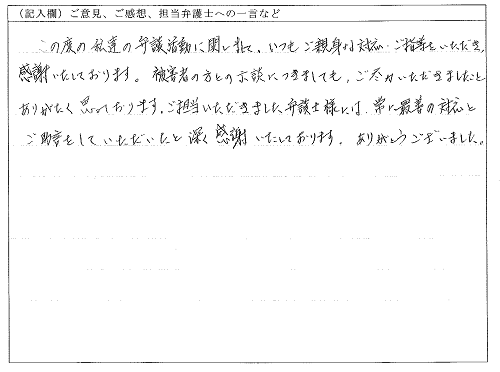 (記入欄)ご意見、ご感想、担当弁護士への一言など
この度の私達の弁護活動に関しまして、いつもご親身な対応・ご指導をいただき、
感謝いたしております。被害者の方との示談につきましても、ご尽力いただきましたこと
ありがたく思っております。ご担当いただきました弁護士様には、常に最善の対応と
ご助言をしていただいたと深く感謝いたしております。ありがとうございました。